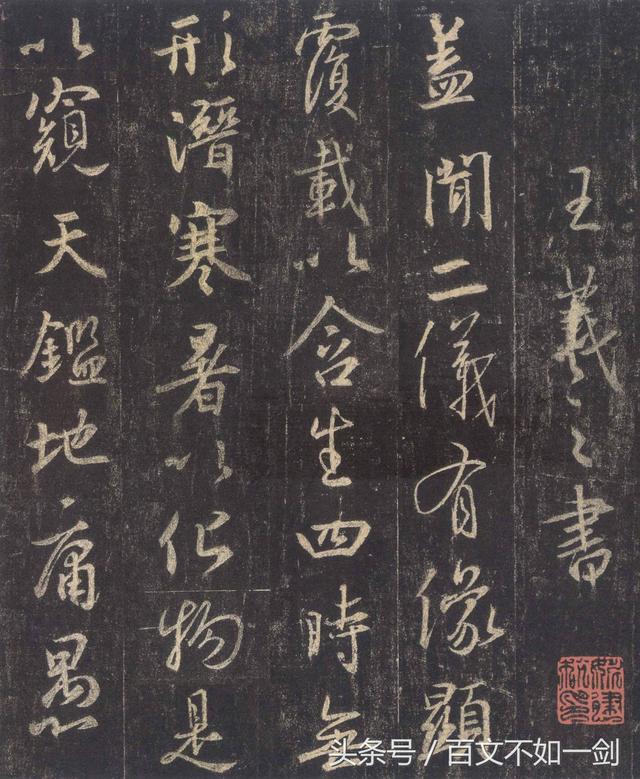 王羲之書
蓋聞二儀有像顯
覆載以含生四時無
形潛寒暑以化物是
以窺天鑑地庸愚
头条号 / 百文不如一剑